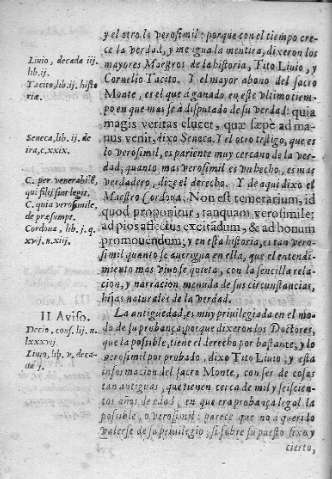 y el otro lo verosimil: porque con el tiempo cre-
ce la verdad, y mengua la mentira, dixeron los
mayores Maestros de la historia, Tito Liuio, y
Cornelio Tacito. Y el mayor abono del sacro
Monte, es el que à ganado en este vltimo tiem-
po en que mas se à disputado de su verdad: quia
magis veritas elucet, quæ sæpe ad ma-
nus venit, dixo Seneca. Y el otro testigo, que es
lo verosimil, es pariente muy cercano de la ver-
dad, quanto mas verosimil es vn hecho, es mas
verdadero, dize el derecho. Y de aqui dixo el
Maestro Cordoua. Non est temerarium, id
quod proponitur, tanquam verosimile;
ad pios affectus excitādum, & ad bonum
promouendum; y en esta historia, es tan vero-
simil quanto se aueriguа en ella, que el entendi-
miento mas viuo se quieta, con la senzilla rela-
cion, y narracion menuda de sus circunstancias,
hijas naturales de la verdad.
La antiguedad, es muy priuilegiada en el mo-
do de su probança; porque dixeron los Doctores,
que la posible, tiene el derecho por bastante, y lo
verosimil por probado, dixo Tito Liuio, y esta
informacion del sacro Monte, con ser de cosas
tan antiguas, que tienen cerca de mil y seiscien-
tos años de edad, en que era probança legal la
posible, o verosimil: parece que no a querido
valerse de su priuilegio; si sobre su puesto fixo, y
cierto,
Liuio, decada iij.
lib. ij.
Tacito, lib. ij. histo
ria.
Seneca, lib. ij. de
ira, c. xxix.
C. per venerabilē,
qui filij sint legit.
C. quia verosimile,
de præsumpt.
Cordoua, lib. j. q.
xvij. n. xiij.
II Auiso.
Decio, cons. lij. n.
lxxxvij.
Liuio, lib. v. deca-
da j.